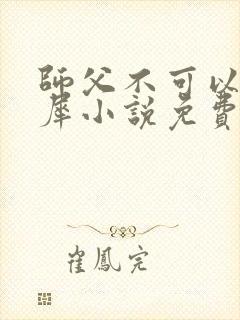 師父不可以
犀小說免費
崔鳳完